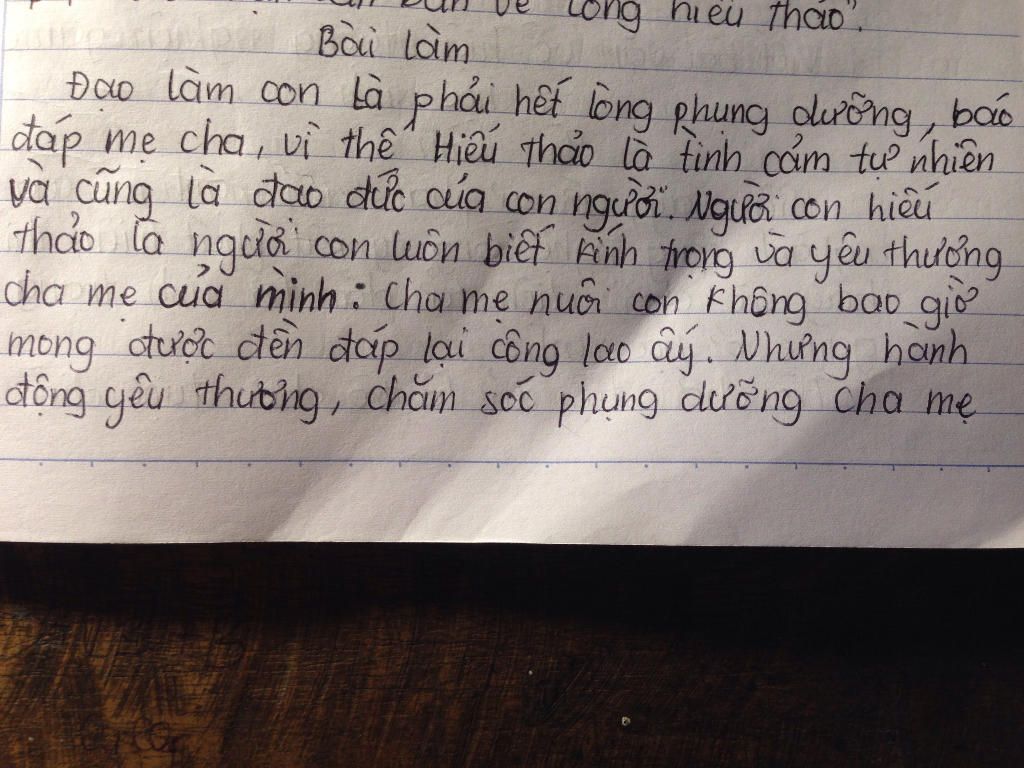 bàn về lòng hiếu thảo".
Bài làm
Đạo làm con là phải hết lòng phụng dưỡng, báo
đáp mẹ cha, vì thế Hiếu thảo là tình cảm tự nhiên
và cũng là đạo đức của con người. Người con hiếu
thảo là người con luôn biết kính trọng và yêu thương
cha mẹ của mình: Cha mẹ nuôi con không bao giờ
mong được đền đáp lại công lao ấy. Nhưng hành
động yêu thương, chăm sóc phụng dưỡng cha mẹ